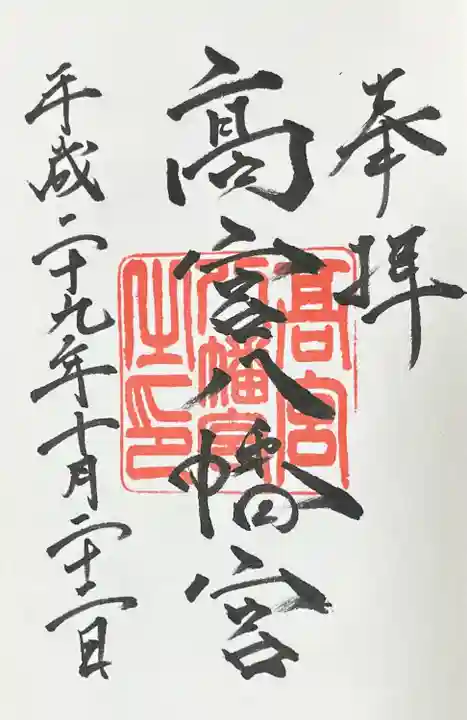 奉拝
高宮八幡宮
高宮
八幡宮
之印
平成二十九年十月二十二日